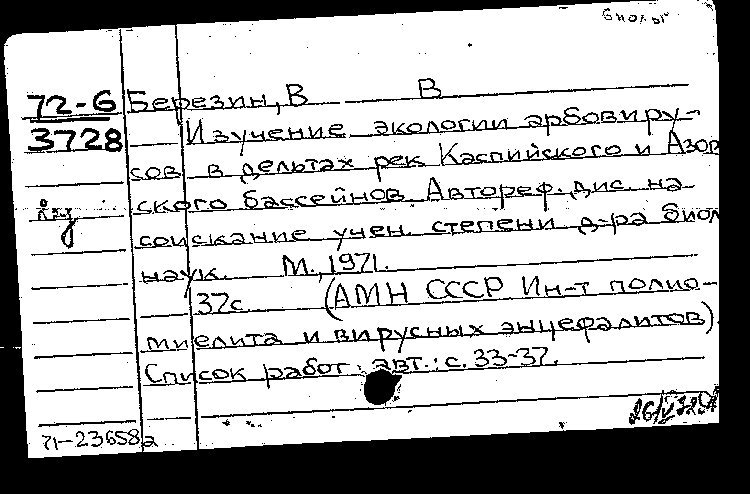 биолог
72-6 Березин, В В
3728 Изучение экологии арбовиру-
сов в дельтах рек Каспийского и Азов
ского бассейнов. Автореф. дис. на
соискание учен. степени д-ра биол
наук. М., 1971.
37с. (АМН СССР Ин-т полио-
миелита и вирусных энцефалитов).
Список работ авт.: с. 33-37.
71-23658а